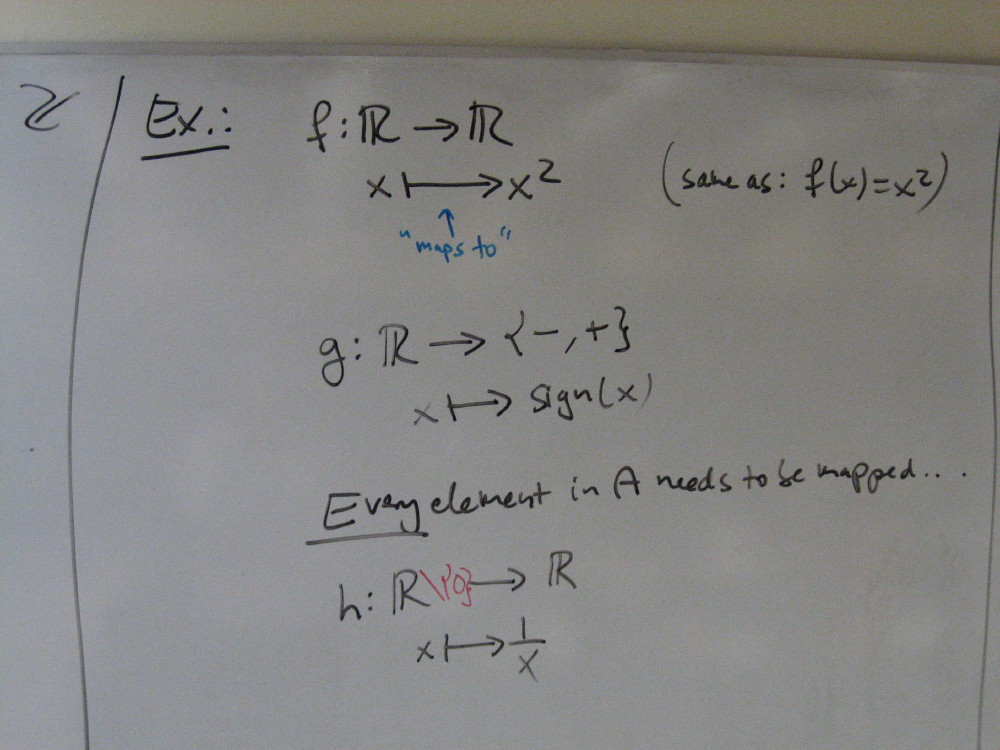 Ex.: f: ℝ → ℝ
x ↦ x² (same as: f(x)=x²)
"maps to"
g: ℝ → {-,+}
x ↦ sign(x)
Every element in A needs to be mapped...
h: ℝ\{0} → ℝ
x ↦ 1/x